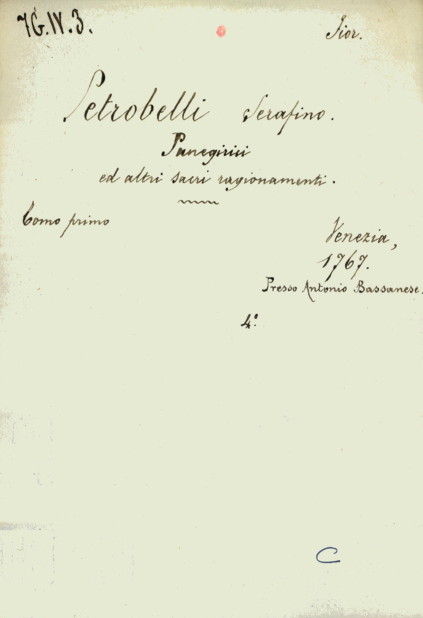 7G.IV.3. Fior.
Petrobelli Serafino.
Panegirici
ed altri sacri ragionamenti.
Tomo primo
Venezia,
1767.
Presso Antonio Bassanese.
4.º
C